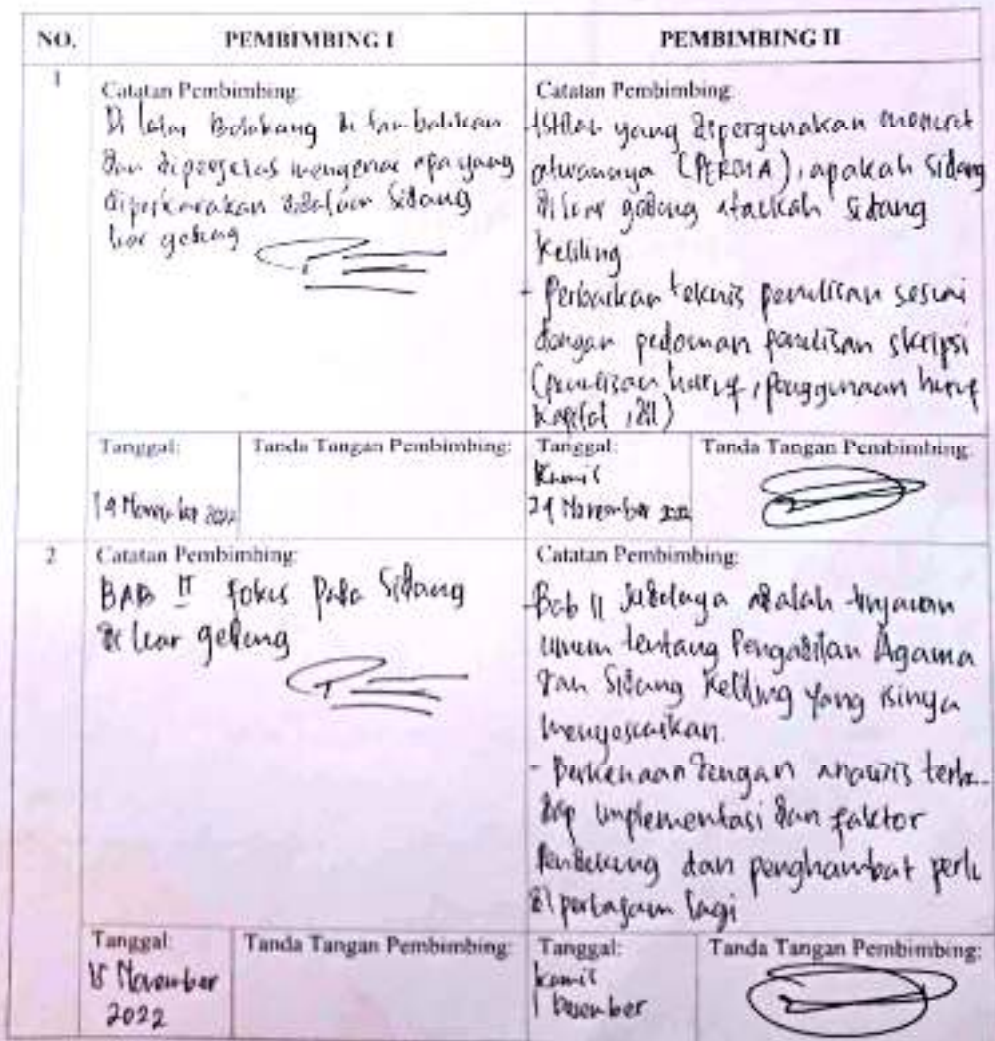 NO.
PEMBIMBING I
PEMBIMBING II
1
Catatan Pembimbing:
Di latar Belakang di tambahkan
dan diperjelas mengenai apa yang
diperkarakan didalam Sidang
luar gedung
Catatan Pembimbing:
- Istilah yang dipergunakan menurut
aturannya (PERMA), apakah sidang
diluar gedung ataukah sidang
Keliling
- Perbaikan teknis penulisan sesuai
dengan pedoman penulisan skripsi
(penulisan huruf, penggunaan huruf
kapital, dll)
Tanggal:
November 2022
Tanda Tangan Pembimbing:
Tanggal:
Kamis
24 November 2022
Tanda Tangan Pembimbing:
2
Catatan Pembimbing:
BAB II fokus pada Sidang
di luar gedung
Catatan Pembimbing:
- Bab II judulnya adalah tinjauan
umum tentang Pengadilan Agama
dan Sidang Keliling yang isinya
menyesuaikan.
- Berkenaan dengan analisis terha-
dap implementasi dan faktor
Pendukung dan penghambat perlu
dipertajam lagi
Tanggal:
November
2022
Tanda Tangan Pembimbing:
Tanggal:
kamis
1 Desember
Tanda Tangan Pembimbing: